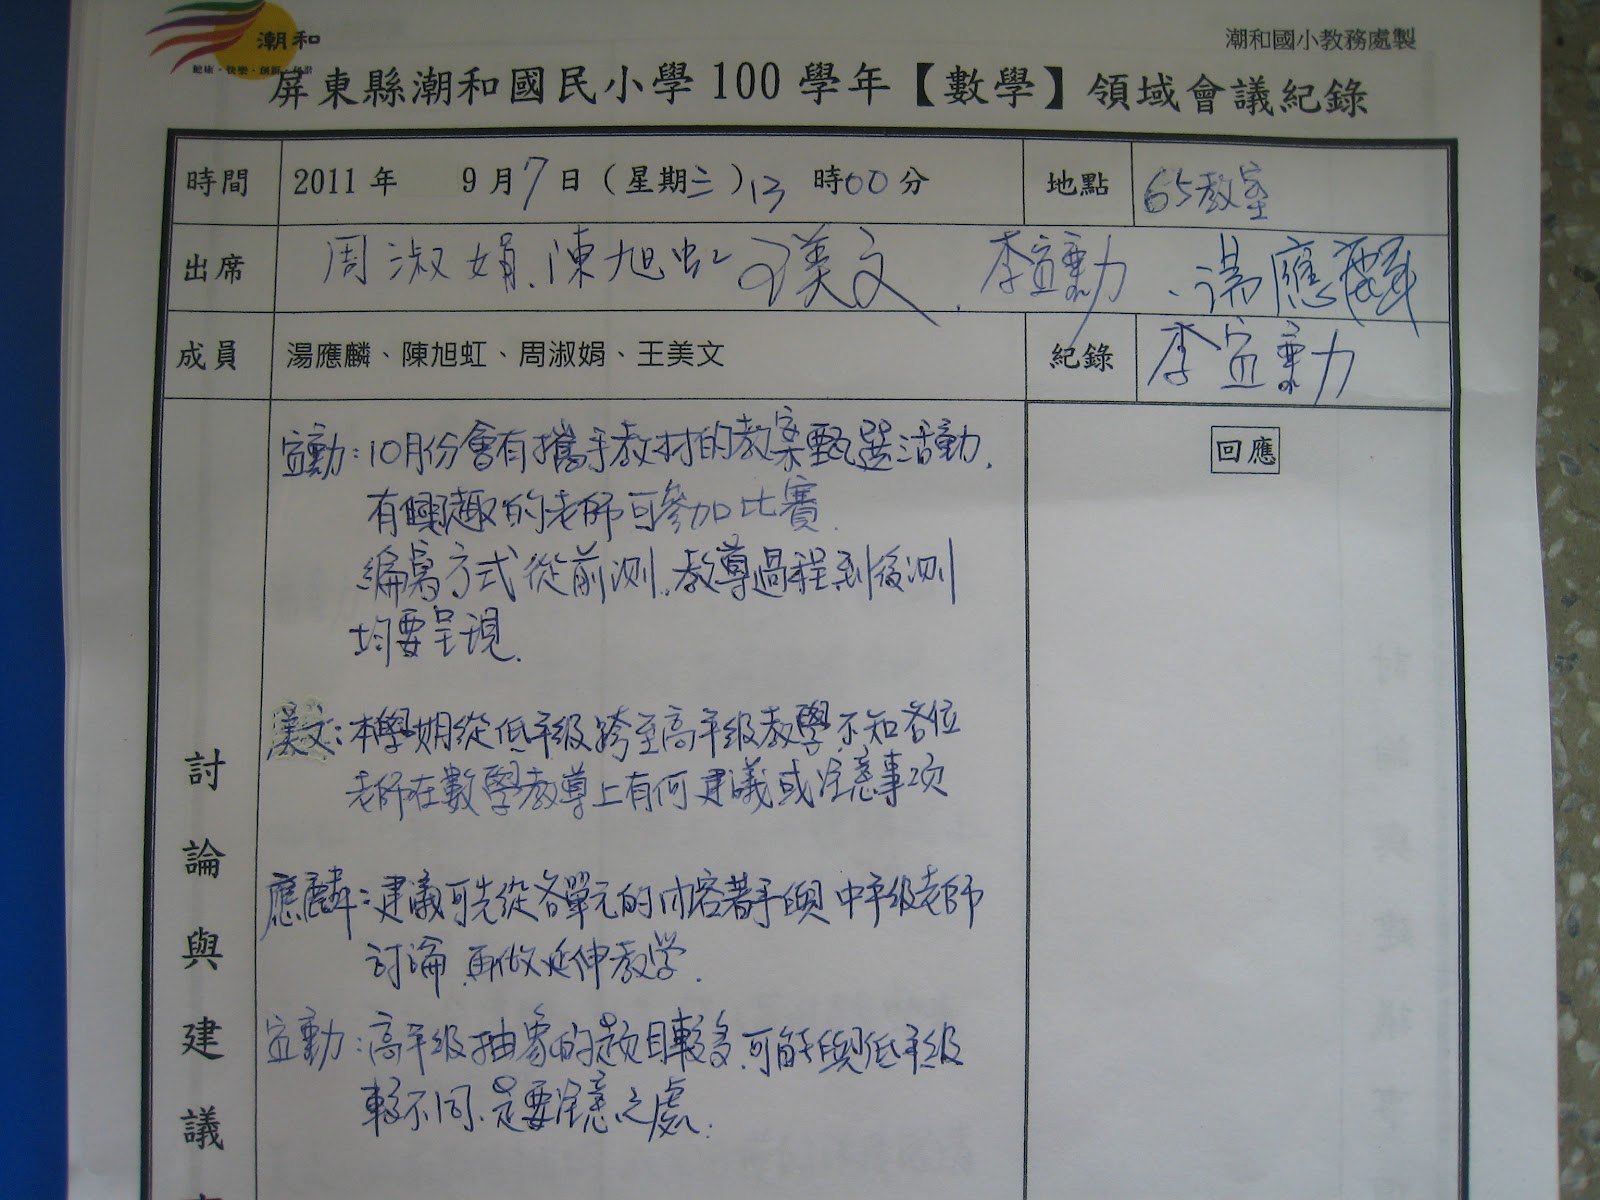 潮和
潮和國小教務處製
屏東縣潮和國民小學100學年【數學】領域會議紀錄
時間 2011年 9月7日(星期三)13時00分 地點 65教室
出席 周淑娟、陳旭虹 美文、李宜勳、湯應麟
成員 湯應麟、陳旭虹、周淑娟、王美文 紀錄 李宜勳
宜勳:10月份會有攜手教材的教案甄選活動,
有興趣的老師可參加比賽.
編寫方式從前測、教導過程到後測
均要呈現.
回應
美文:本學期從低年級跨至高年級教學,不知各位
老師在數學教導上有何建議或注意事項
應麟:建議可先從各單元的內容著手與中年級老師
討論,再做延伸教学.
宜勳:高年級抽象的題目較多,可能與低年級
較不同,是要注意之處.
討論與建議